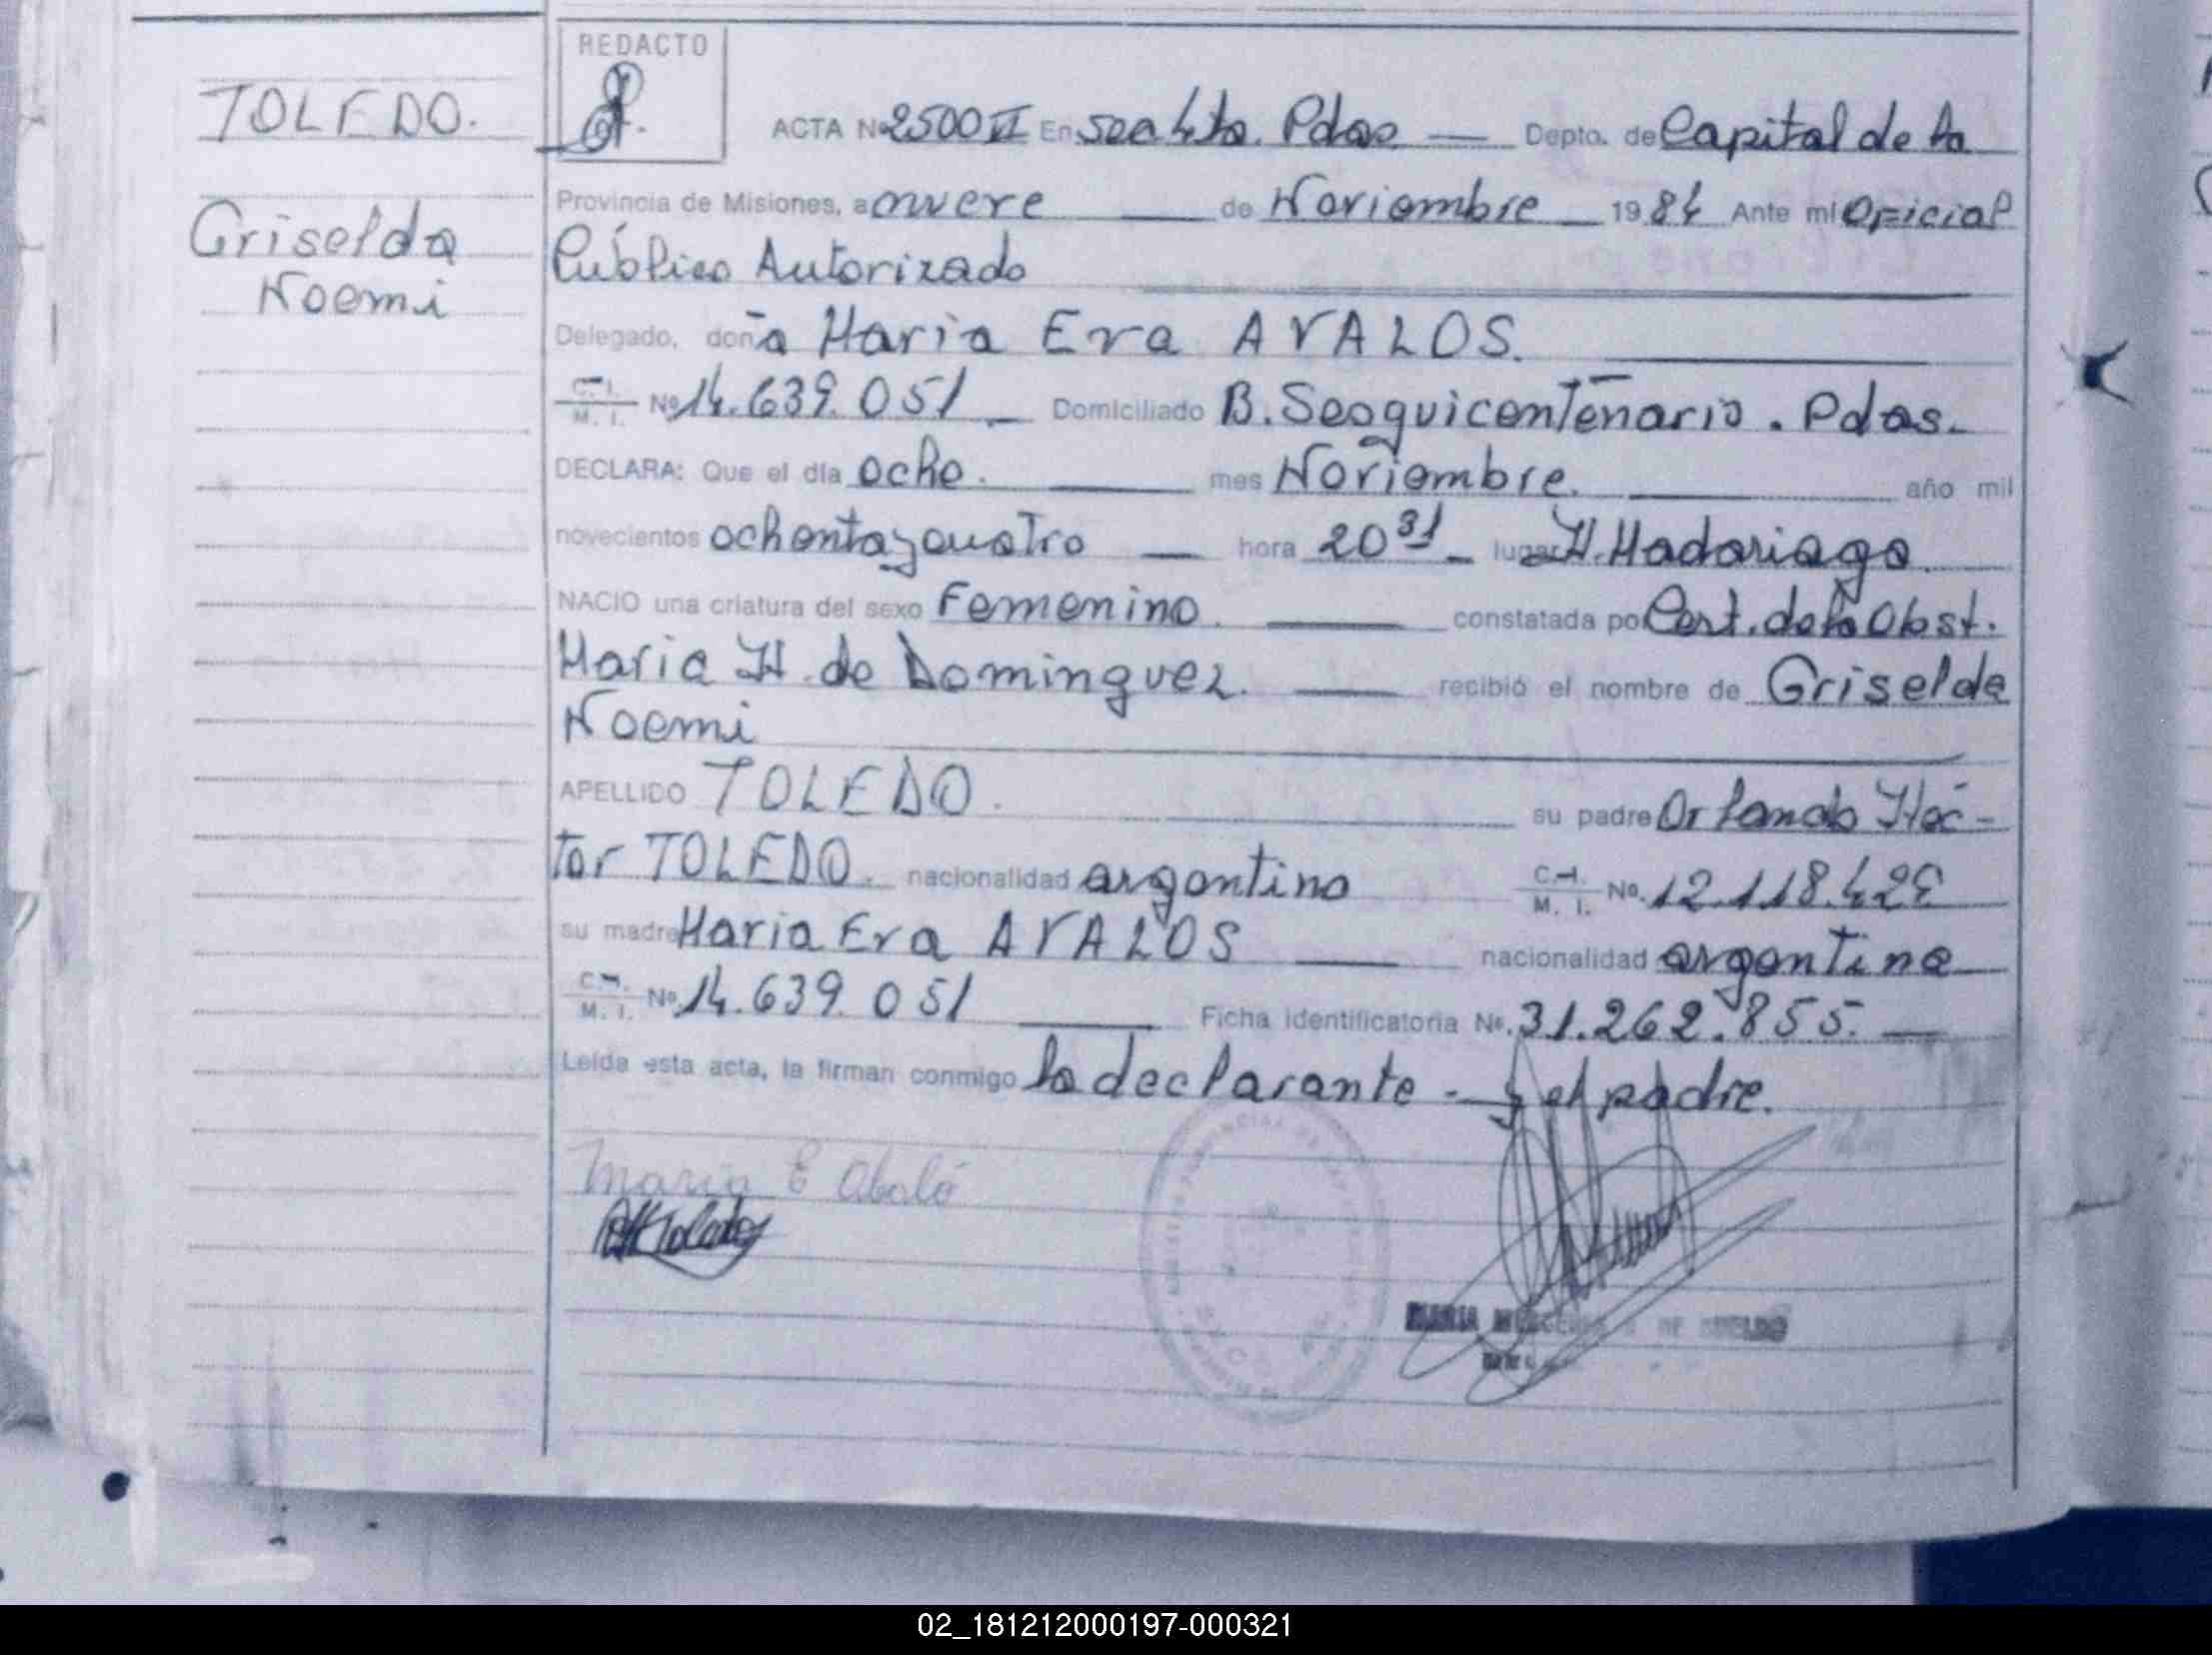 REDACTO
TOLEDO.
ACTA Nº 2500 VI En Sec 4ta. Pdas — Depto. de Capital de la
Griselda
Noemi
Provincia de Misiones, a nueve — de Noviembre — 1984 Ante mí Oficial
Público Autorizado
Delegado, doña Maria Eva AVALOS.
C. I. M. I. Nº 14.639.051 — Domiciliado B. Sesquicentenario. Pdas.
DECLARA: Que el día ocho. — mes Noviembre. — año mil
novecientos ochenta y cuatro — hora 20 31 — lugar H. Madariaga
NACIO una criatura del sexo Femenino. — constatada por Cert. de la Obst.
Maria H. de Dominguez. — recibió el nombre de Griselda
Noemi
APELLIDO TOLEDO. su padre Orlando Héc-
tor TOLEDO. nacionalidad argentino C. I. M. I. No. 12.118.428
su madre Maria Eva AVALOS — nacionalidad argentina
C. I. M. I. Nº 14.639.051 — Ficha identificatoria Nº. 31.262.855. —
Leída esta acta, la firman conmigo la declarante - y el padre.
Maria E Abalo
Toledo
MARIA MERCEDES DE
02_181212000197-000321